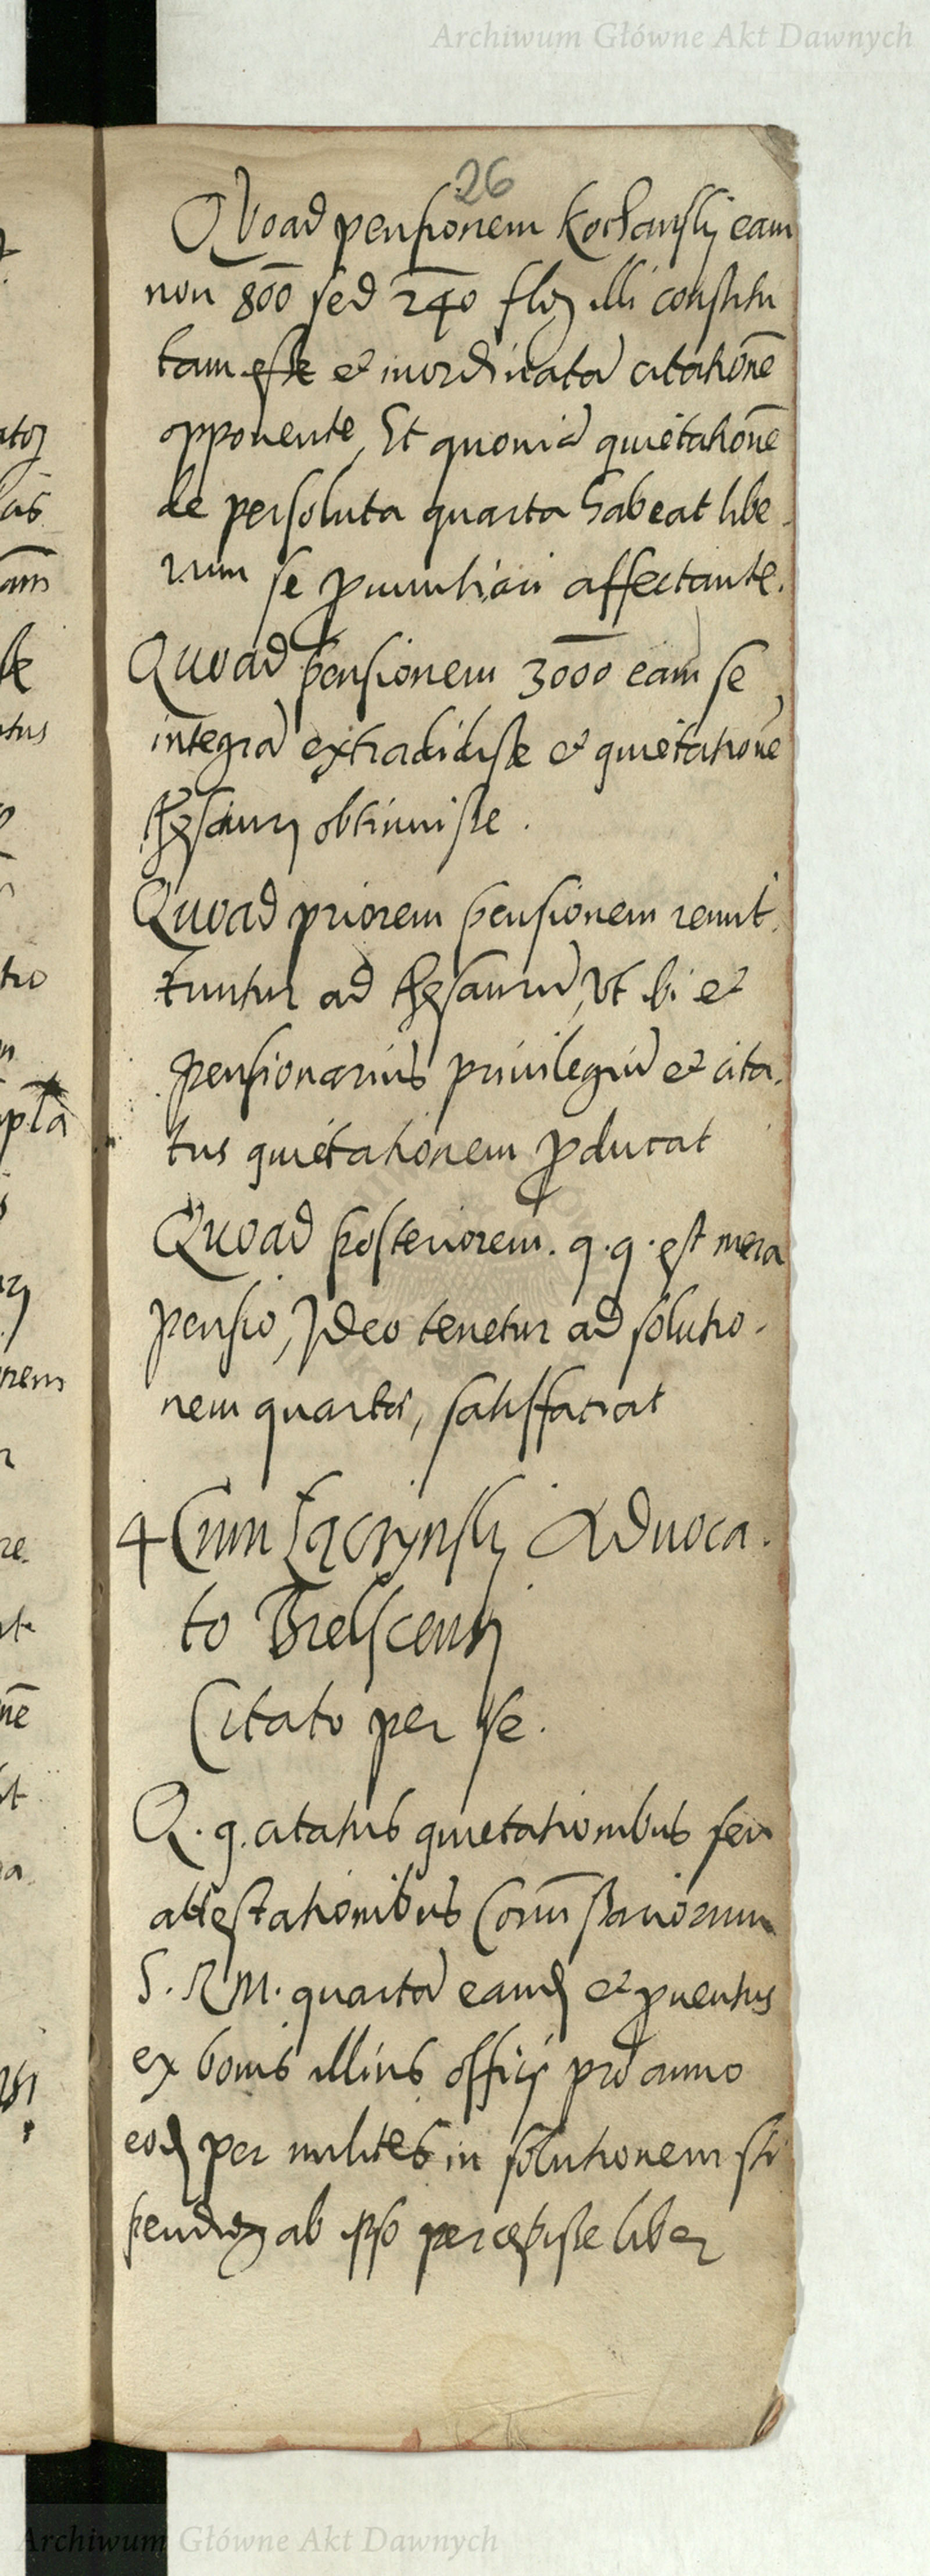 Archiwum Główne Akt Dawnych
26
Quoad pensionem Kochansky eam
non 800 sed 240 floȝ illi constitu
tam esse et inordinatā citationē
opponente, Et quoniā quietationē
de persoluta quarta habeat libe
rum se pnuntiari affectante.
Quoad pensionem 3000 eam se
integrā extradidisse et quietationē
thesaurj obtinuisse.
Quoad priorem pensionem remit
tuntur ad thesaurū, Vt ibi et
pensionarius privilegiū et cita.
tus quietationem pducat
Quoad posteriorem. q. q. est mera
pensio, Ideo tenetur ad solutio.
nem quartæ, satisfaciat
4 Cum Lączynsky Aduoca.
to Brescensi
Citato per se.
Q. q. citatus quietationibus seu
attestationibus Comissariorum
S. R M. quartā eand et puentus
ex bonis illius officij pro anno
eod per milites in solutionem sti
pendioȝ ab ipso percepisse liber
Archiwum Główne Akt Dawnych